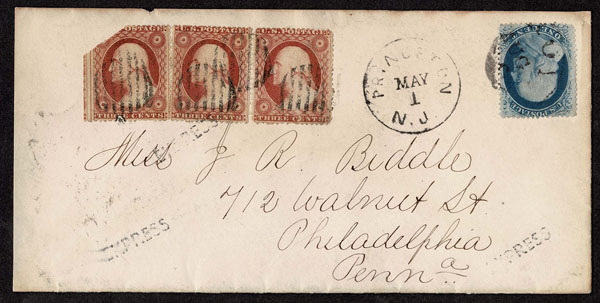 U.S. POSTAGE U.S. POSTAGE U.S. POSTAGE
THREE CENTS THREE CENTS THREE CENTS
PRINCETON
MAY
1
N.J.
U.S. POSTAGE
ONE CENT
EXPRESS
Miss J R. Biddle
712 Walnut St.
Philadelphia
Penna
EXPRESS
EXPRESS